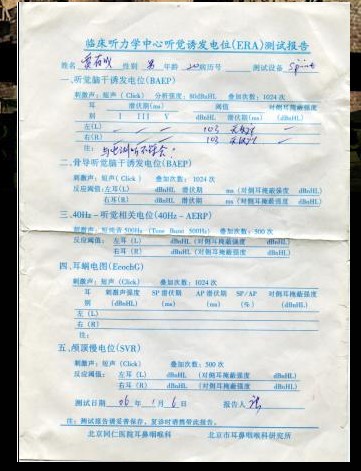 临床听力学中心听觉诱发电位(ERA)测试报告
姓名 性别 男 年龄 病历号 测试设备
一、听觉脑干诱发电位(BAEP)
刺激声：短声（Click） 分析强度：80dBnHL 叠加次数：1024次
耳 潜伏期(ms) 阈值 对侧耳掩蔽强度
别 I III V (dBnHL) (dBnHL)
左(L) 103
右(R) 103
注：
二、骨导听觉脑干诱发电位(BAEP)
刺激声：短声（Click） 叠加次数：1024次
反应阈值：左耳(L) dBnHL 潜伏期 ms (对侧耳掩蔽强度 dBnHL)
右耳(R) dBnHL 潜伏期 ms (对侧耳掩蔽强度 dBnHL)
三、40Hz－听觉相关电位(40Hz－AERP)
刺激声：短纯音 500Hz (Tone Burst 500Hz) 叠加次数：500次
反应阈值： 左耳 (L) dBnHL (对侧耳掩蔽强度 dBnHL)
右耳 (R) dBnHL (对侧耳掩蔽强度 dBnHL)
四、耳蜗电图(EcochG)
刺激声：短声（Click） 叠加次数：1024次
耳 刺激声强度 SP潜伏期 AP潜伏期 SP/AP 对侧耳掩蔽强度
别 (dBnHL) (ms) (ms) (%) (dBnHL)
左 (L)
右 (R)
注：
五、颅顶慢电位(SVR)
刺激声：短声（Click） 叠加次数：500次
反应阈值： 左耳 (L) dBnHL (对侧耳掩蔽强度 dBnHL)
右耳 (R) dBnHL (对侧耳掩蔽强度 dBnHL)
测试日期 06 年 1 月 6 日 报告人
注：测试报告请妥善保存，复诊时请携带此报告。
北京同仁医院耳鼻咽喉科 北京市耳鼻咽喉科研究所